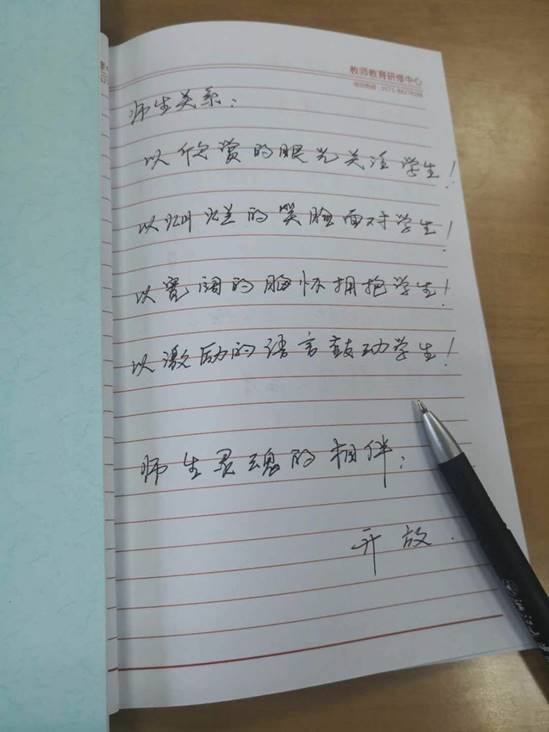 教师教育研修中心
师生关系：
以欣赏的眼光关注学生！
以灿烂的笑脸面对学生！
以宽阔的胸怀拥抱学生！
以激励的语言鼓动学生！
师生灵魂的相伴：
开放.